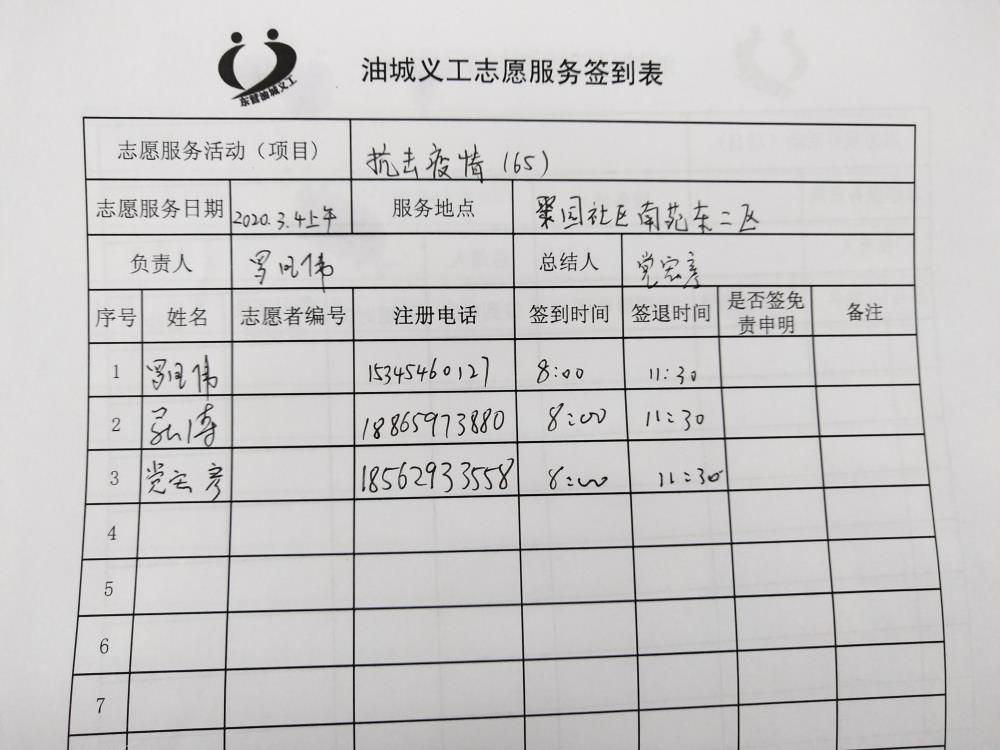 东营油城义工
油城义工志愿服务签到表
志愿服务活动（项目） 抗击疫情（65）
志愿服务日期 2020.3.4上午 服务地点 聚园社区南苑东二区
负责人 罗同伟 总结人 党宏彦
序号 姓名 志愿者编号 注册电话 签到时间 签退时间 是否签免责申明 备注
1 罗同伟 15345460127 8:00 11:30
2 18865973880 8:00 11:30
3 党宏彦 18562933558 8:00 11:30
4
5
6
7